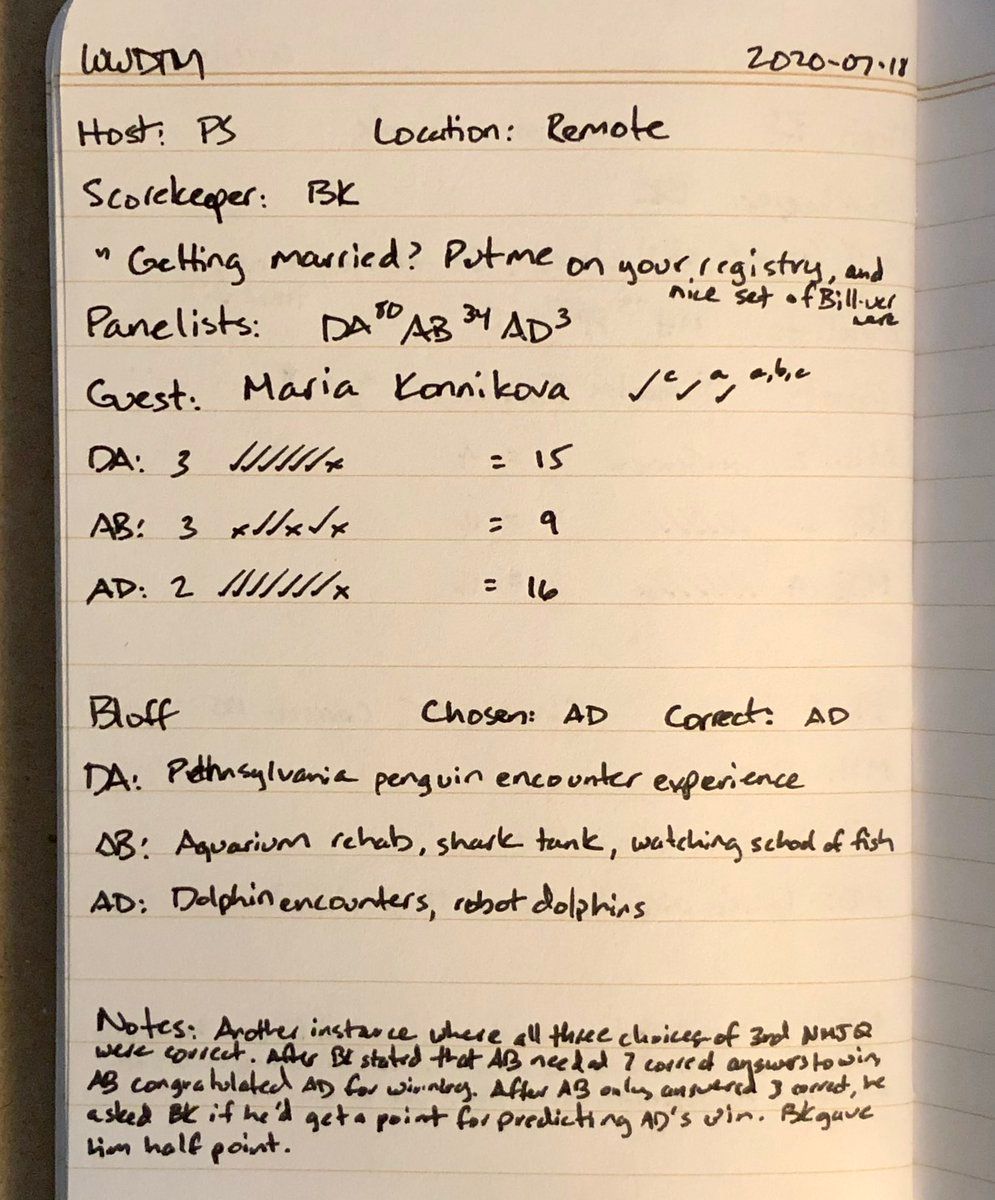 WWDTM 2020-07-18
Host: PS Location: Remote
Scorekeeper: BK
" Getting married? Put me on your registry, and
nice set of Bill-ver
ware
Panelists: DA 80 AB 34 AD 3
Guest: Maria Konnikova ✓c ✓a ✓a,b,c
DA: 3 ✓✓✓✓✓✓x = 15
AB: 3 x✓✓x✓x = 9
AD: 2 ✓✓✓✓✓✓✓x = 16
Bluff Chosen: AD Correct: AD
DA: Pennsylvania penguin encounter experience
AB: Aquarium rehab, shark tank, watching school of fish
AD: Dolphin encounters, robot dolphins
Notes: Another instance where all three choices of 3rd NMJQ
were correct. After BK stated that AB needed 7 correct answers to win,
AB congratulated AD for winning. After AB only answered 3 correct, he
asked BK if he'd get a point for predicting AD's win. BK gave
him half point.